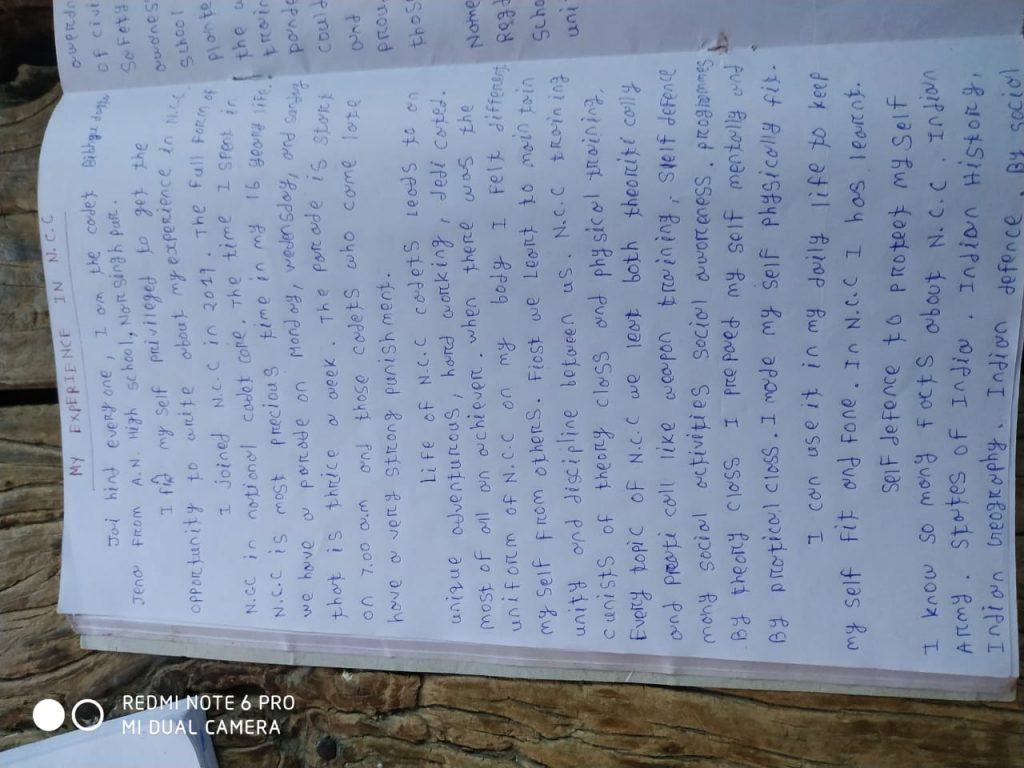 MY EXPERIENCE IN N.C.C
Jai hind everyone, I am the cadet
Jena from A.N. High school, Narsingh pur.
I my self privileged to get the
opportunity to write about my experience in N.C.C.
I joined N.C.C in 2019. The full form of
N.C.C in national cadet core. The time I spent in
N.C.C is most precious time in my 16 years life.
we have a parade on Monday, wedensday, and sunday
that is thrice a week. The parade is start
on 7.00 am and those cadets who come late
have a very strong punishment.
Life of N.C.C cadets leads to an
unique adventurous, hard working, dedi cated.
most of all an achiever. when there was the
uniform of N.C.C on my body I felt different
my self from others. First we learnt to main tain
unity and discipline between us. N.C.C training
cunists of theory class and physical training.
Every topic of N.C.C we leat both theoriti cally
and practi call like weapon training, self defence
many social activities social awareness. programmes
By theory class I prepaed my self mentally and
By pratical class. I made my self physically fit.
I can use it in my daily life to keep
my self fit and fone. In N.C.C I has learnt.
self defence to protect my self
I know so many facts about N.C.C. Indian
Army. States of India. Indian History,
Indian Greography. Indian defence. By social
awaren
of civi
Safety
awarnes
school
plante
the w
train
pande
could
and
prou
thos
Name
Regd
Scho
uni
REDMI NOTE 6 PRO
MI DUAL CAMERA